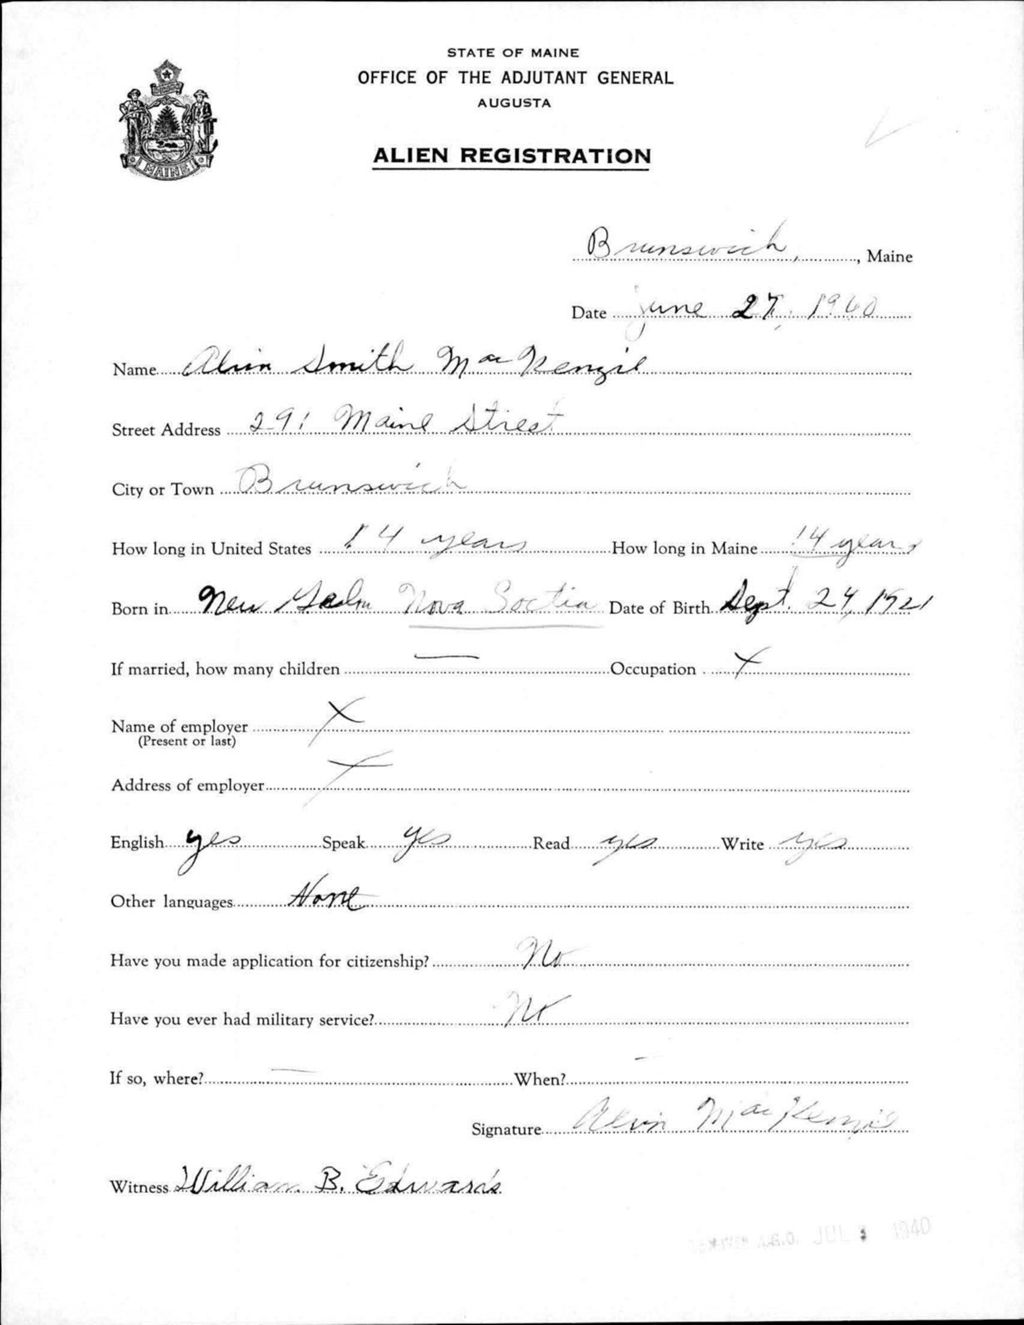 STATE OF MAINE
OFFICE OF THE ADJUTANT GENERAL
AUGUSTA
ALIEN REGISTRATION
MAINE
Brunswick, Maine
Date June 27, 1940
Name Alvin Smith MacKenzie
Street Address 291 Maine Street
City or Town Brunswick
How long in United States 14 years How long in Maine 14 years
Born in New Salm Nova Soctia Date of Birth Sept. 24, 1921
If married, how many children — Occupation x
Name of employer x
(Present or last)
Address of employer x
English yes Speak yes Read yes Write yes
Other languages None
Have you made application for citizenship? No
Have you ever had military service? No
If so, where? — When? —
Signature Alvin MacKenzie
Witness William B. Edwards
A.G.O. JUL 1940